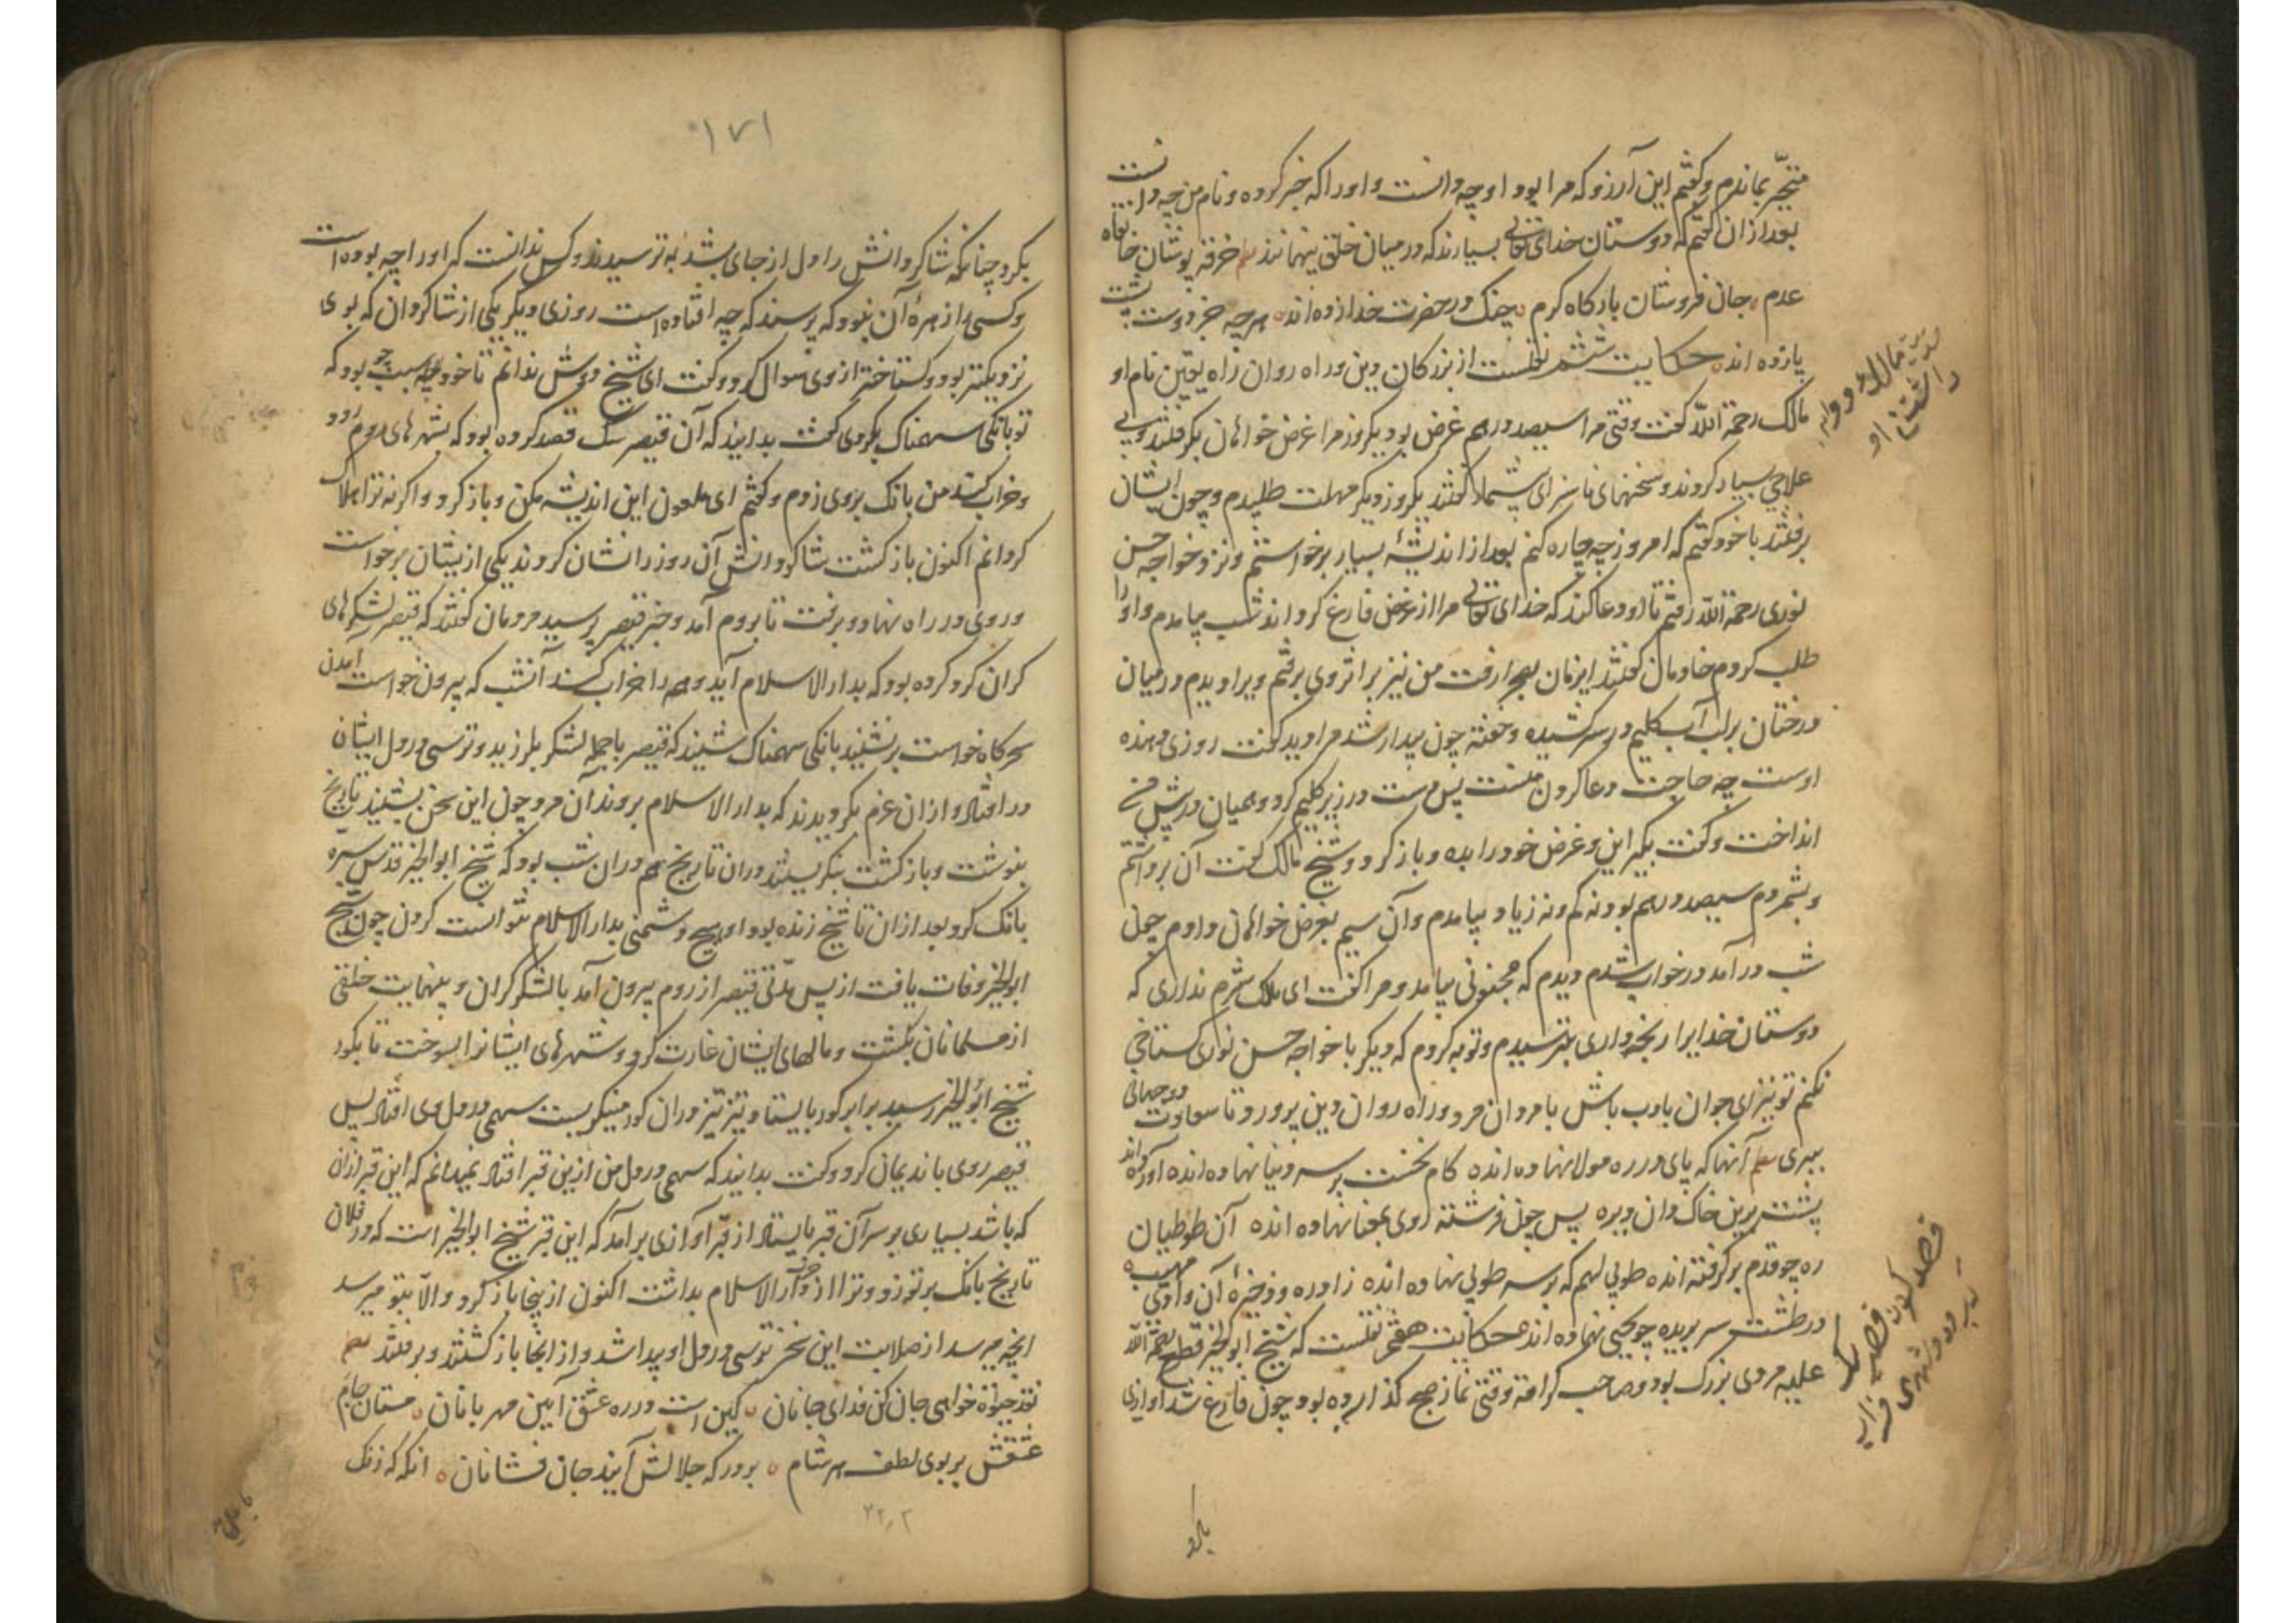 متحیّر بماندم و گفتم این آرزو که مرا بود او چه دانست و او را که خبر کرده و نام من چه دانست
بعد از ان گفتم که دوستان خدای تعالی بسیارند که در میان خلق پنهانند نظم خرقه پوشان خانقاه
عدم جان فروشان بارگاه کرم چنگ در حضرت خدا زده اند هر چه جز دوست پشت
پا زده اند حکایت ششم نقلست از بزرگان دین و راه روان راه یقین نام او
مالک رحمة الله گفت وقتی مرا سیصد درهم غرض بود یکروز مرا غرض خواهان بگرفتند و بی
علاجی بسیار کردند و سخنهای ناسزای گفتند یکروز دیگر مهلت طلبیدم و چون ایشان
برفتند با خود گفتم که امروز چه چاره کنم بعد از اندیشهٔ بسیار برخواستم و نزد خواجه حسن
نوری رحمة الله رفتم تا او دعا کند که خدای تعالی مرا از غرض فارغ گرداند شب بیامدم و او را
طلب کردم خادمان گفتند این زمان بصحرا رفت من نیز بر اثر وی برفتم ویرا دیدم در میان
درختان بر لب آب گلیم در سر کشیده و خفته چون بیدار شد مرا دید گفت روزی دهنده
اوست چه حاجت دعا کردن منست پس دست در زیر گلیم کرد و همیان در پیش من
انداخت و گفت بگیر این و غرض خود را بده و باز گرد و شیخ مالک گفت آن برداشتم
و بشمردم سیصد درهم بود نه کم و نه زیاد بیامدم و آن سیم بغرض خواهان دادم چون
شب در آمد در خواب شدم دیدم که مجنونی بیامد و مرا گفت ای مالک شرم نداری که
دوستان خدایرا رنجه داری بترسیدم و توبه کردم که دیگر با خواجه حسن نوری گستاخی
نکنم تو نیز ای جوان بادب باش با مردان مرد و راه روان دین پرور و تا سعادت دو جهانی
ببری نظم آنها که پای در ره مولا نهاده اند گام نخست بر سر دنیا نهاده اند آورده اند
پشت برین خاکدان ویره پس چون فرشته روی بعقبا نهاده اند آن طوطیان
ره چو قدم بر گرفته اند طوبی لهم که بر سر طوبی نهاده اند زاد ره و ذخیرهٔ آن وادی مهیب
در طشت سر بریده چو یحیی نهاده اند حکایت هفتم نقلست که شیخ ابو الخیر قطع رحمة الله
علیه مردی بزرگ بود و صاحب کرامة وقتی نماز صبح گذارده بود چون فارغ شد آوازی
بکرد
بکرد چنانکه شاگردانش را دل از جای بشد به ترسیدند و کس ندانست که او را چه بوده است
و کسی را زهرهٔ آن نبود که پرسند که چه افتاده است روزی دیگر یکی از شاگردان که بوی
نزدیکتر بود و گستاختر از وی سوال کرد و گفت ای شیخ دوش ندانم تا خود چه سبب بود که
تو بانگی سهمناک بکردی گفت بدانید که آن قیصر سگ قصد کرده بود که بشهرهای روم رود
و خراب کند من بانگ بروی زدم و گفتم ای ملعون این اندیشه مکن و باز گرد و اگرنه ترا هلاک
گردانم اکنون باز گشت شاگردانش آن روز را نشان کردند یکی از یشان برخواست
و روی در راه نهاد و برفت تا بروم آمد و خبر قیصر پرسید مردمان گفتند که قیصر لشکرهای
گران گرد کرده بود که بدار الاسلام آید و همه را خراب کند آنشب که بیرون خواست آمدن
سحرگاه خواست برنشیند بانگی سهمناک شنیند که قیصر با جمله لشکر بلرزید و ترسی در دل ایشان
در افتاد و از ان عزم بگردیدند که بدار الاسلام بروند آن مرد چون این سخن بشنید تاریخ
بنوشت و باز گشت بنگریستند در ان تاریخ هم در ان شب بود که شیخ ابو الخیر قدس سرّه
بانگ کرد بعد از ان تا شیخ زنده بود او هیچ دشمنی بدار الاسلام نتوانست کردن چون شیخ
ابو الخیر وفات یافت از پس مدّتی قیصر از روم بیرون آمد با لشکر گران و بینهایت خلقی
از مسلمانان بکشت و مالهای ایشان غارت کرد و شهرهای ایشانرا بسوخت تا بگور
شیخ ابو الخیر رسید برابر گور بایستاد و تیز تیز در ان گور مینگریست سهمی در دل وی افتاد پس
قیصر روی با ندیمان کرد و گفت بدانید که سهمی در دل من ازین قبر افتاد نمیدانم که این قبر ازان
که باشد بسیاری بر سر آن قبر بایستاد از قبر آوازی برآمد که این قبر شیخ ابو الخیر است که در فلان
تاریخ بانگ بر تو زد و ترا از دار الاسلام بداشت اکنون ازینجا باز گرد و الّا بتو میرسد
انچه میرسد از صلابت این سخن ترسی در دل او پیدا شد و از انجا باز گشتند و برفتند نظم
نقد خواهی جان کن فدای جانان کین است در ره عشق آیین مهربانان مستان جام
عشقش بر بوی لطف هر شام بر درگه جلالش آیند جان فشانان انکه که زنگ
١٧١